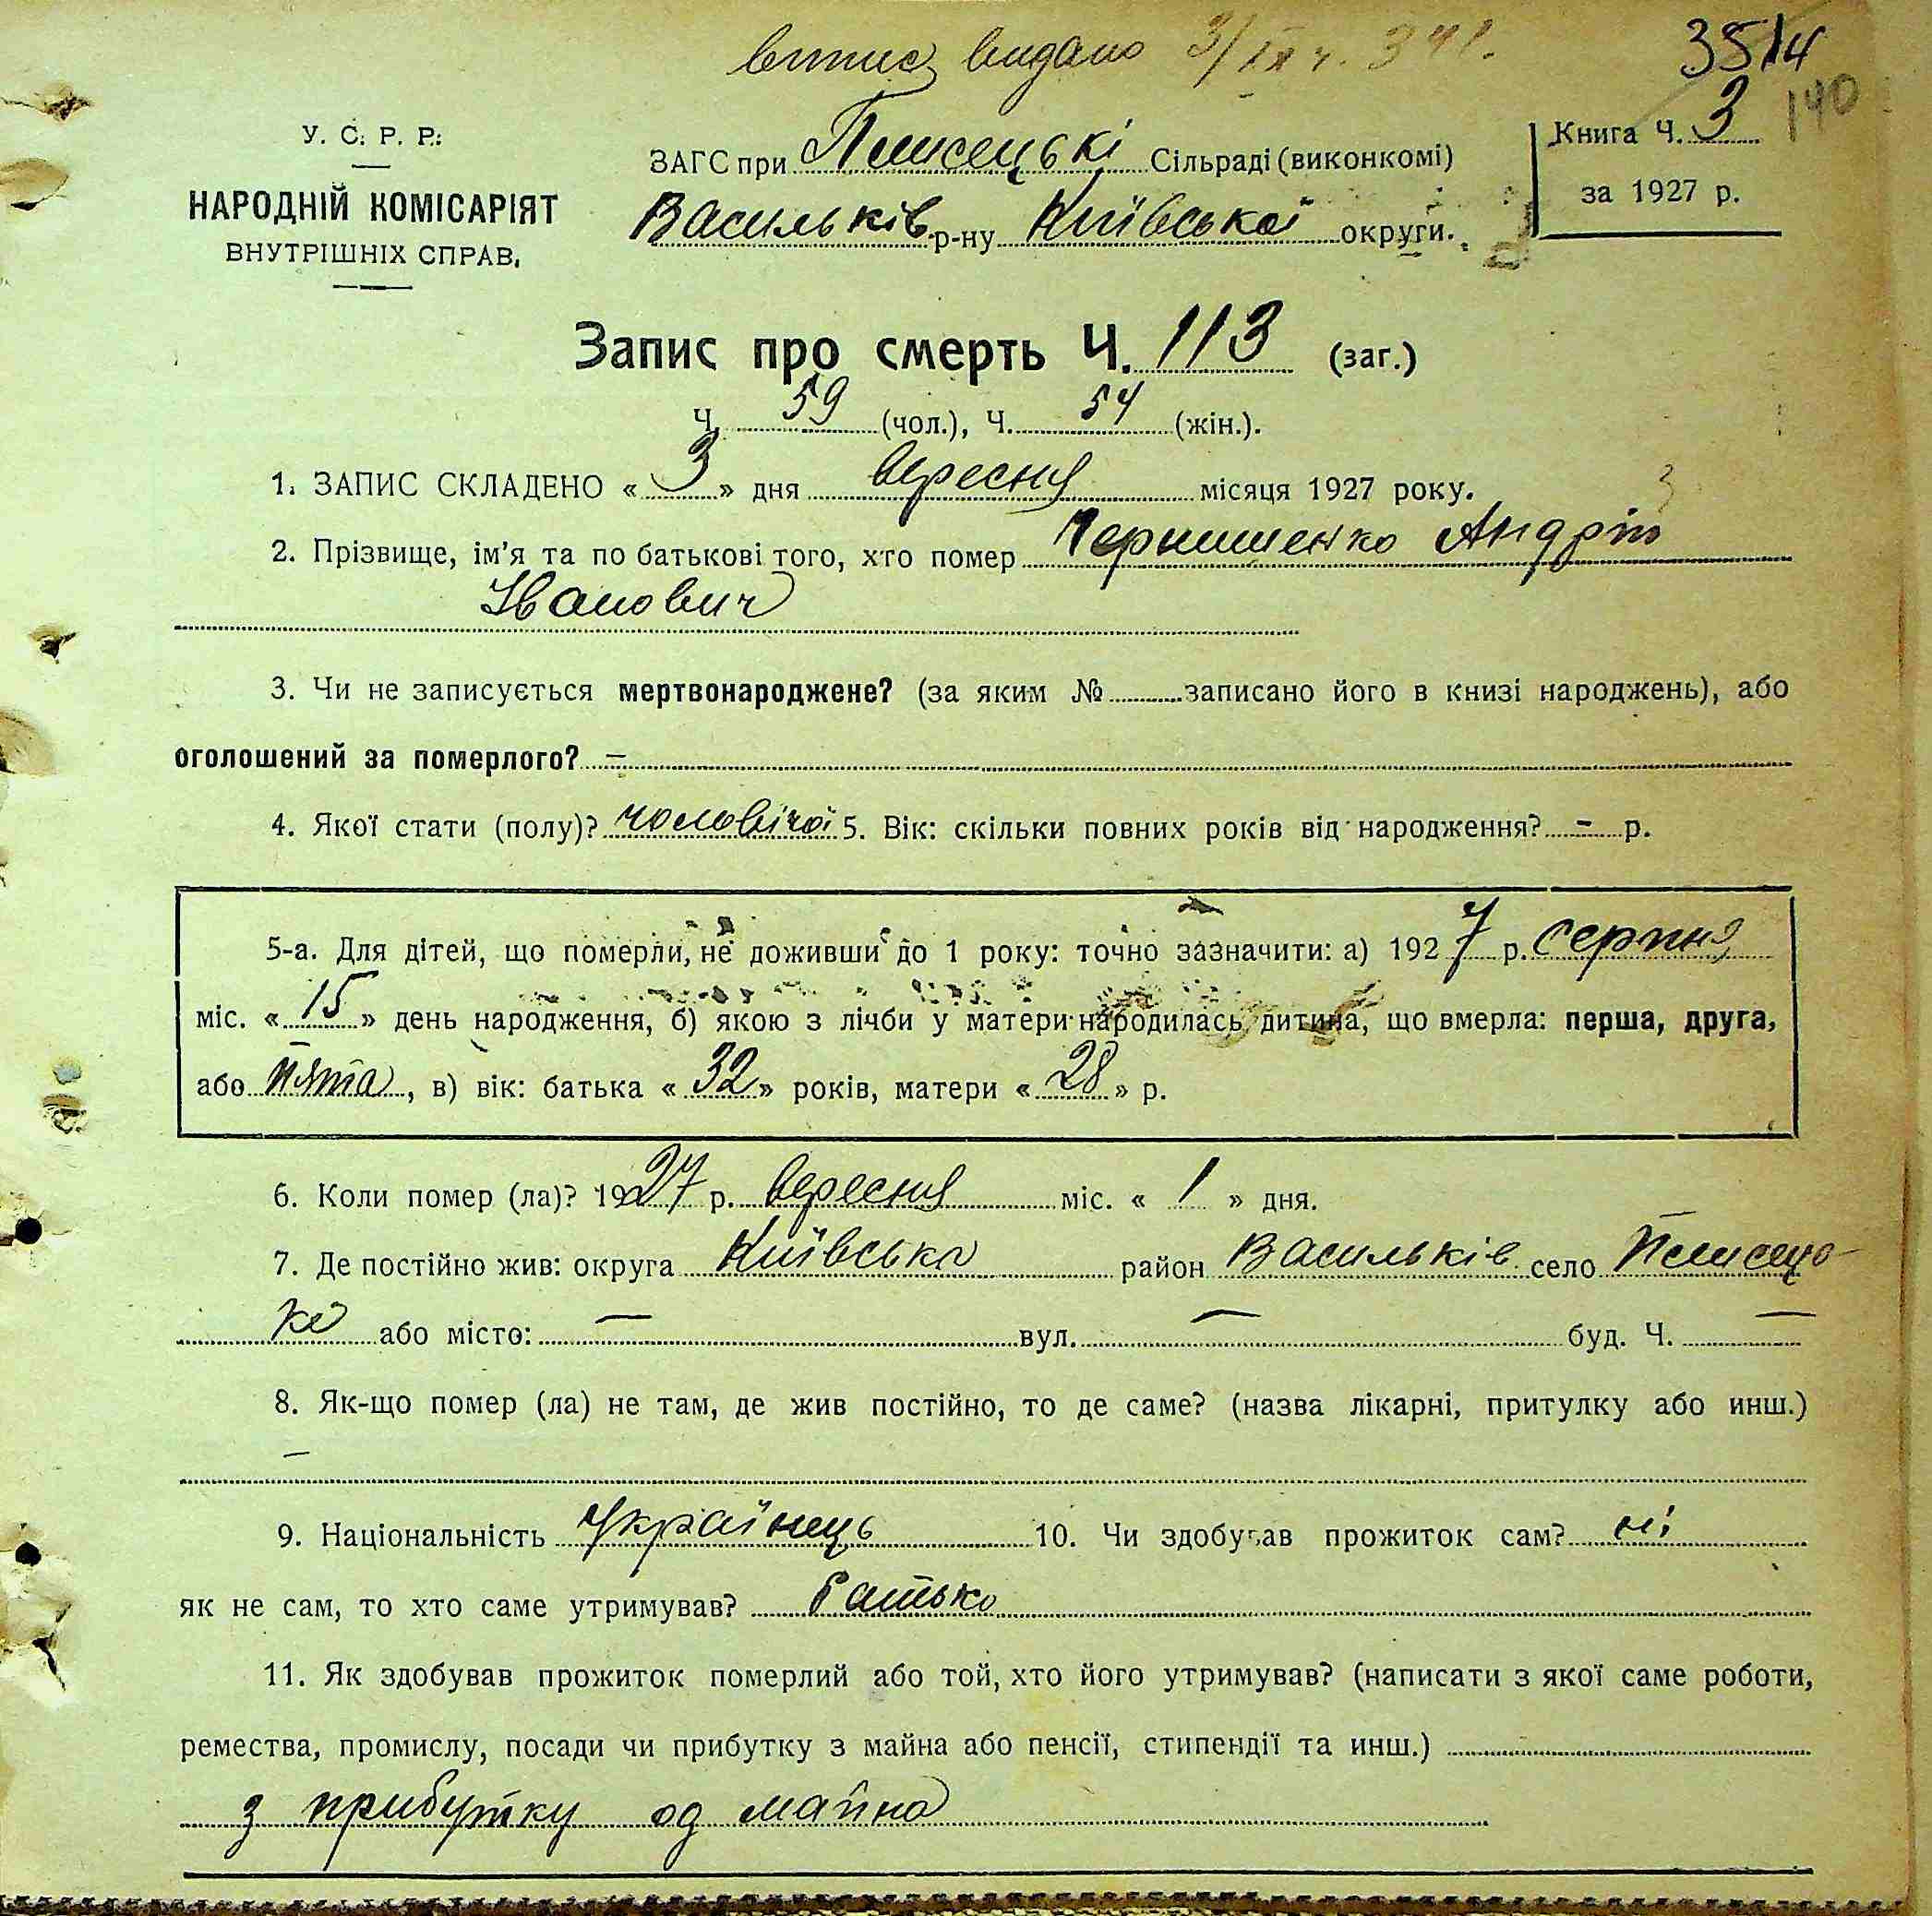 витис видано 3/IX ч. 34 1.
3514
140
У. С. Р. Р.
НАРОДНІЙ КОМІСАРІЯТ
ВНУТРІШНІХ СПРАВ.
ЗАГС при Плисецькі Сільраді (виконкомі)
Васильків р-ну Київської округи.
Книга Ч. 3
за 1927 р.
Запис про смерть Ч. 113 (заг.)
Ч. 59 (чол.), Ч. 54 (жін.).
1. ЗАПИС СКЛАДЕНО « 3 » дня вересня місяця 1927 року.
2. Прізвище, ім'я та по батькові того, хто помер Чернишенко Андрій
Іванович
3. Чи не записується мертвонароджене? (за яким № записано його в книзі народжень), або
оголошений за померлого? –
4. Якої стати (полу)? чоловічої 5. Вік: скільки повних років від народження? – р.
5-а. Для дітей, що померли, не доживши до 1 року: точно зазначити: а) 1927 р. серпня
міс. « 15 » день народження, б) якою з лічби у матери народилась дитина, що вмерла: перша, друга,
або пята, в) вік: батька « 32 » років, матери « 28 » р.
6. Коли помер (ла)? 1927 р. вересня міс. « 1 » дня.
7. Де постійно жив: округа Київська район Васильків село Плисець-
ке або місто: – вул. – буд. Ч. –
8. Як-що помер (ла) не там, де жив постійно, то де саме? (назва лікарні, притулку або инш.)
–
9. Національність Українець 10. Чи здобував прожиток сам? ні
як не сам, то хто саме утримував? батько
11. Як здобував прожиток померлий або той, хто його утримував? (написати з якої саме роботи,
ремества, промислу, посади чи прибутку з майна або пенсії, стипендії та инш.)
з прибутку од майна